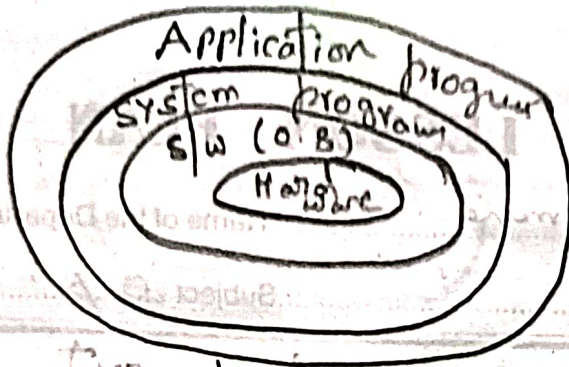 Application program
System program
S/W (O.S)
Hardware